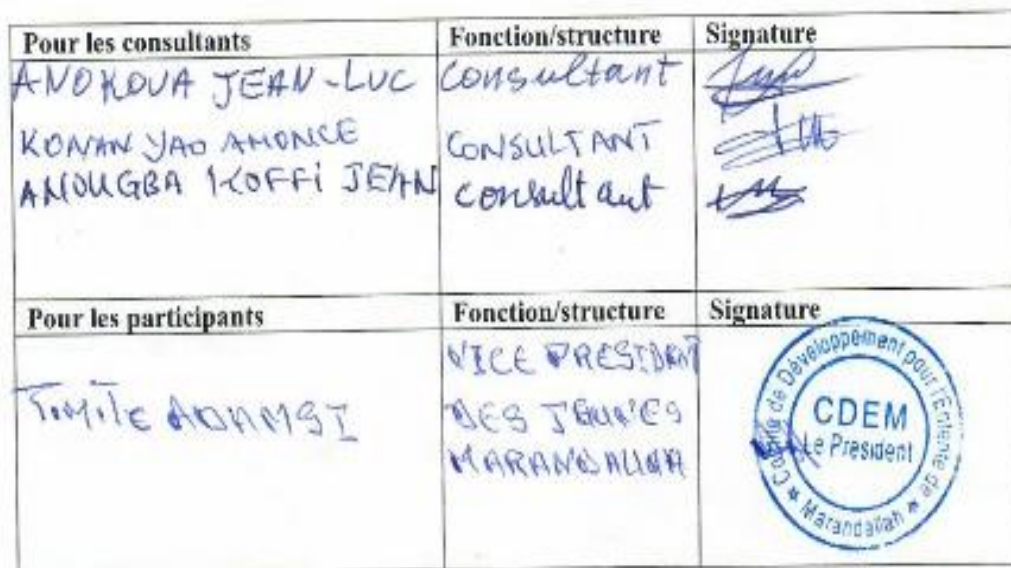 Pour les consultants Fonction/structure Signature
ANOKOUA JEAN-LUC Consultant
KONAN YAO AMONCE CONSULTANT
ANOUGBA KOFFI JEAN consultant
Pour les participants Fonction/structure Signature
VICE PRESIDENT
DES JEUNES
MARANDALLAH
Comité de Développement pour l'Entente de Marandallah
CDEM
Le President